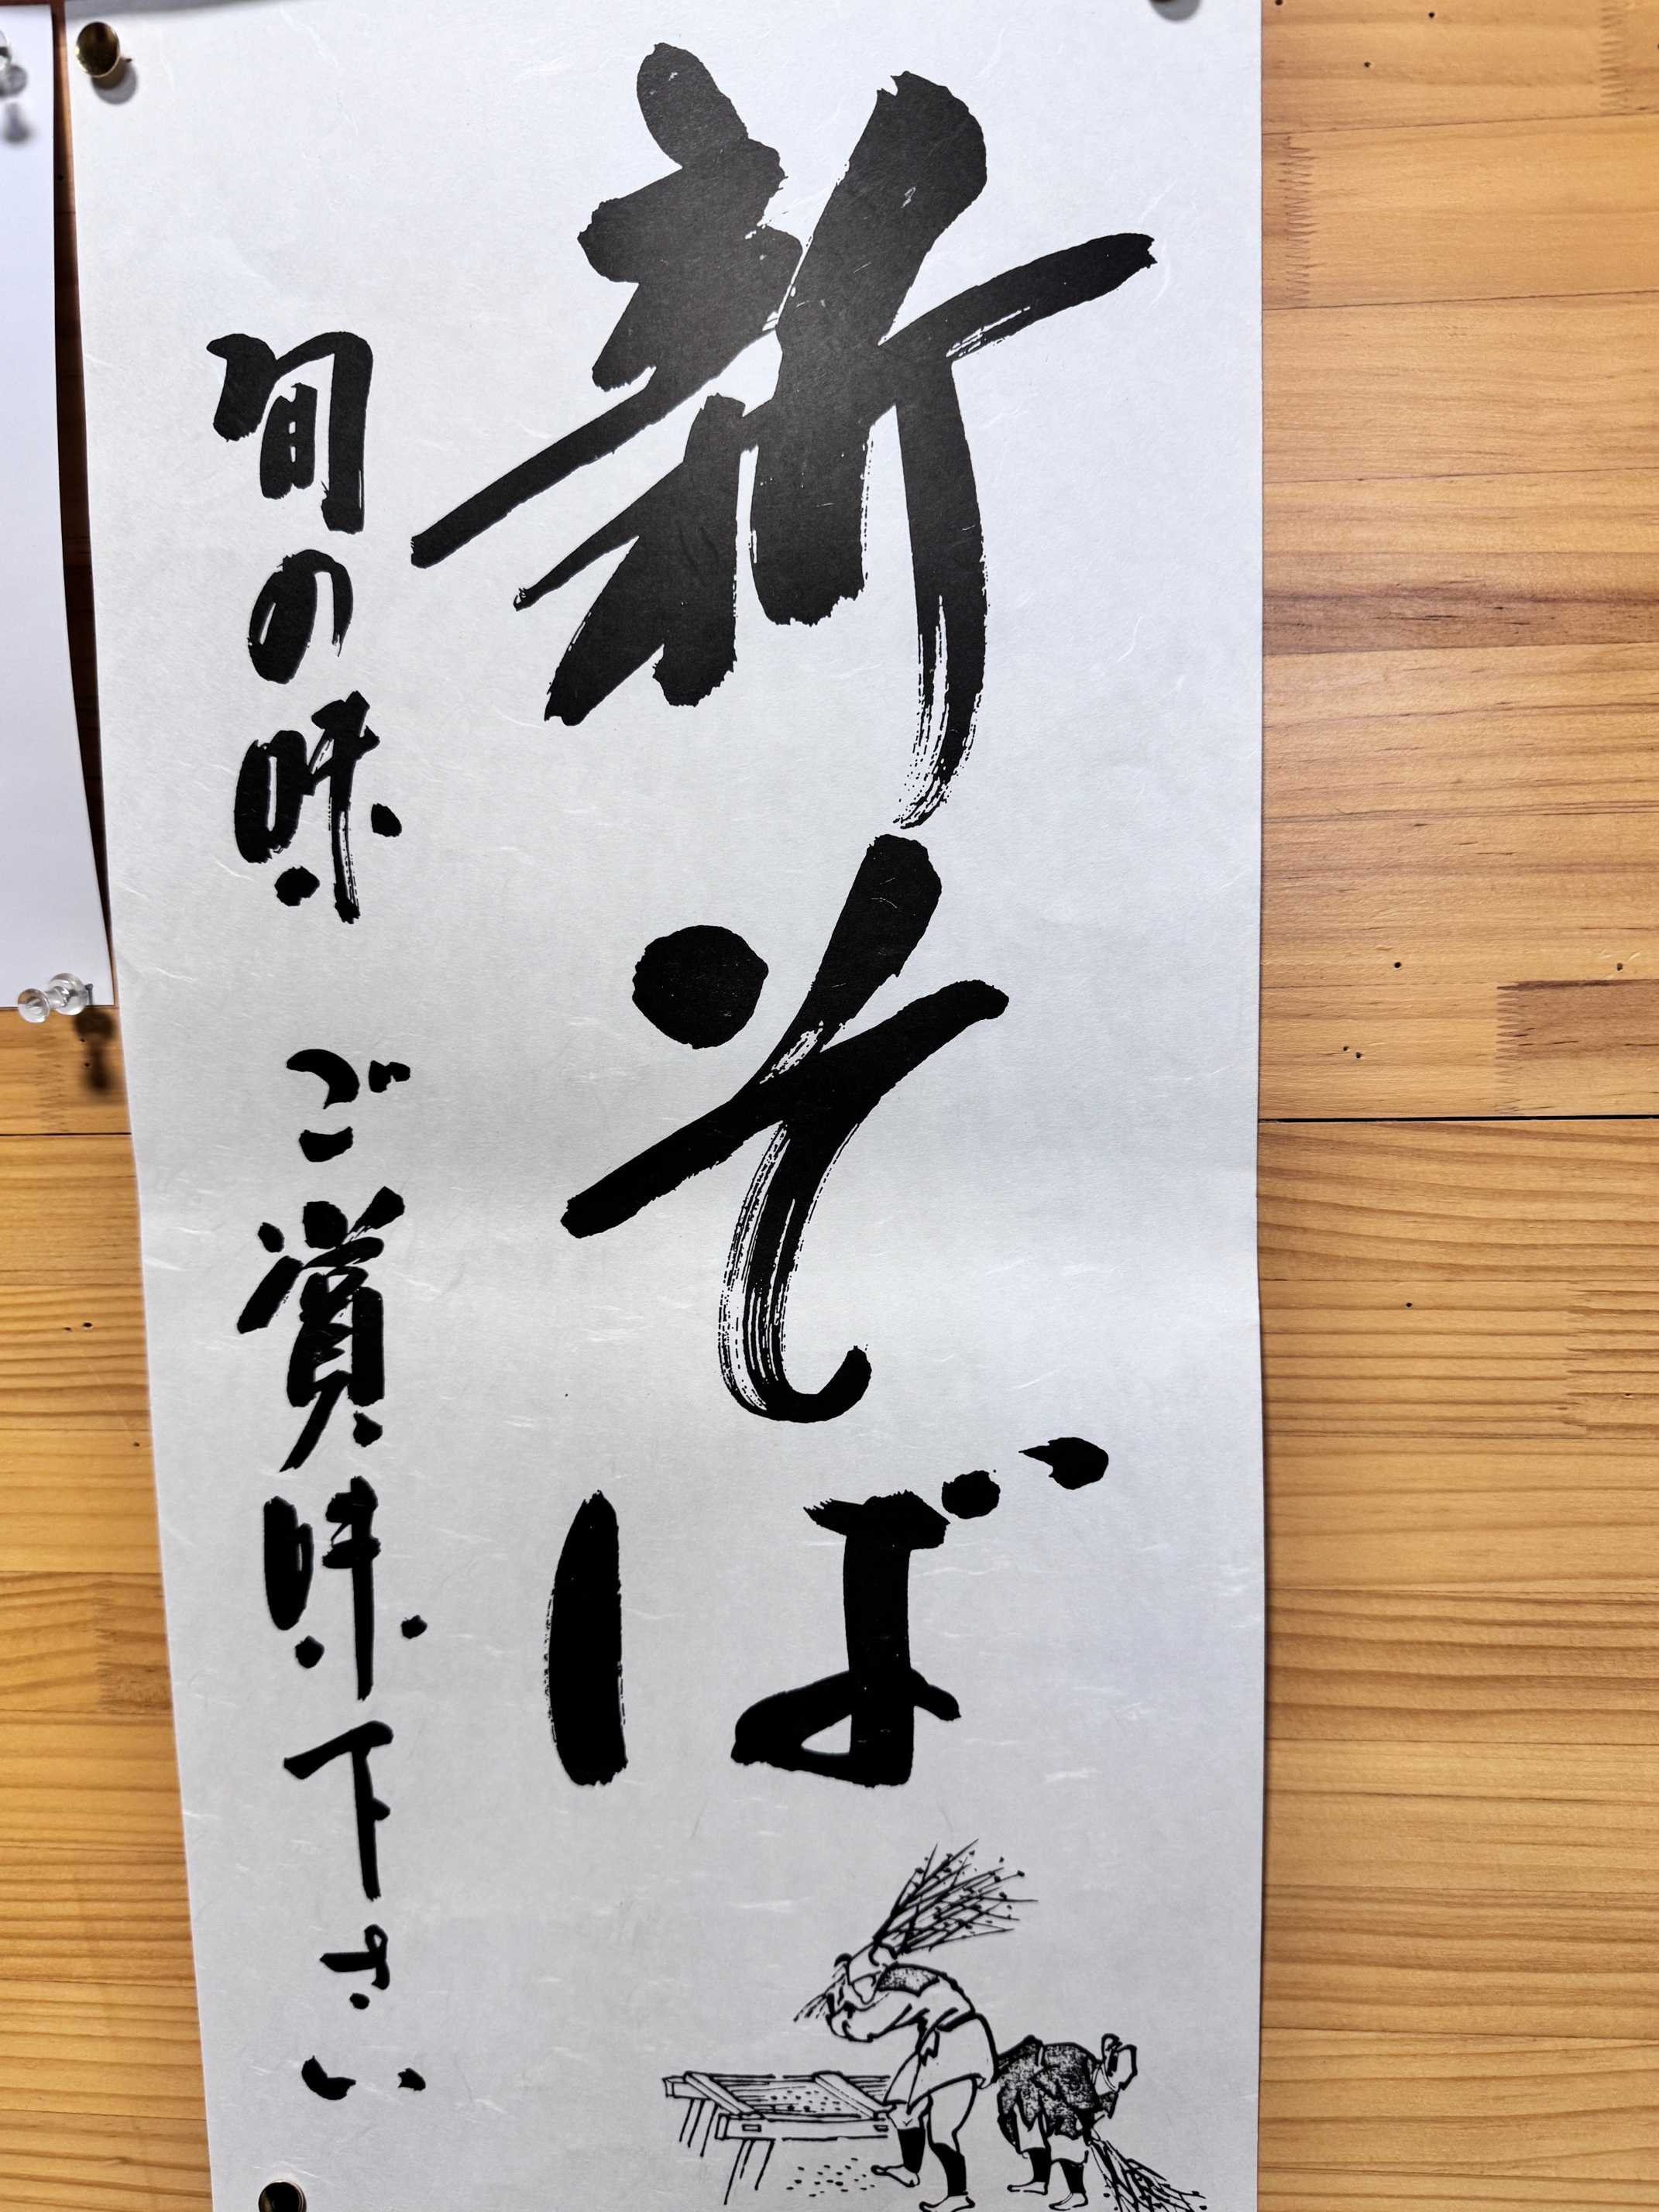 新そば
旬の味 ご賞味下さい